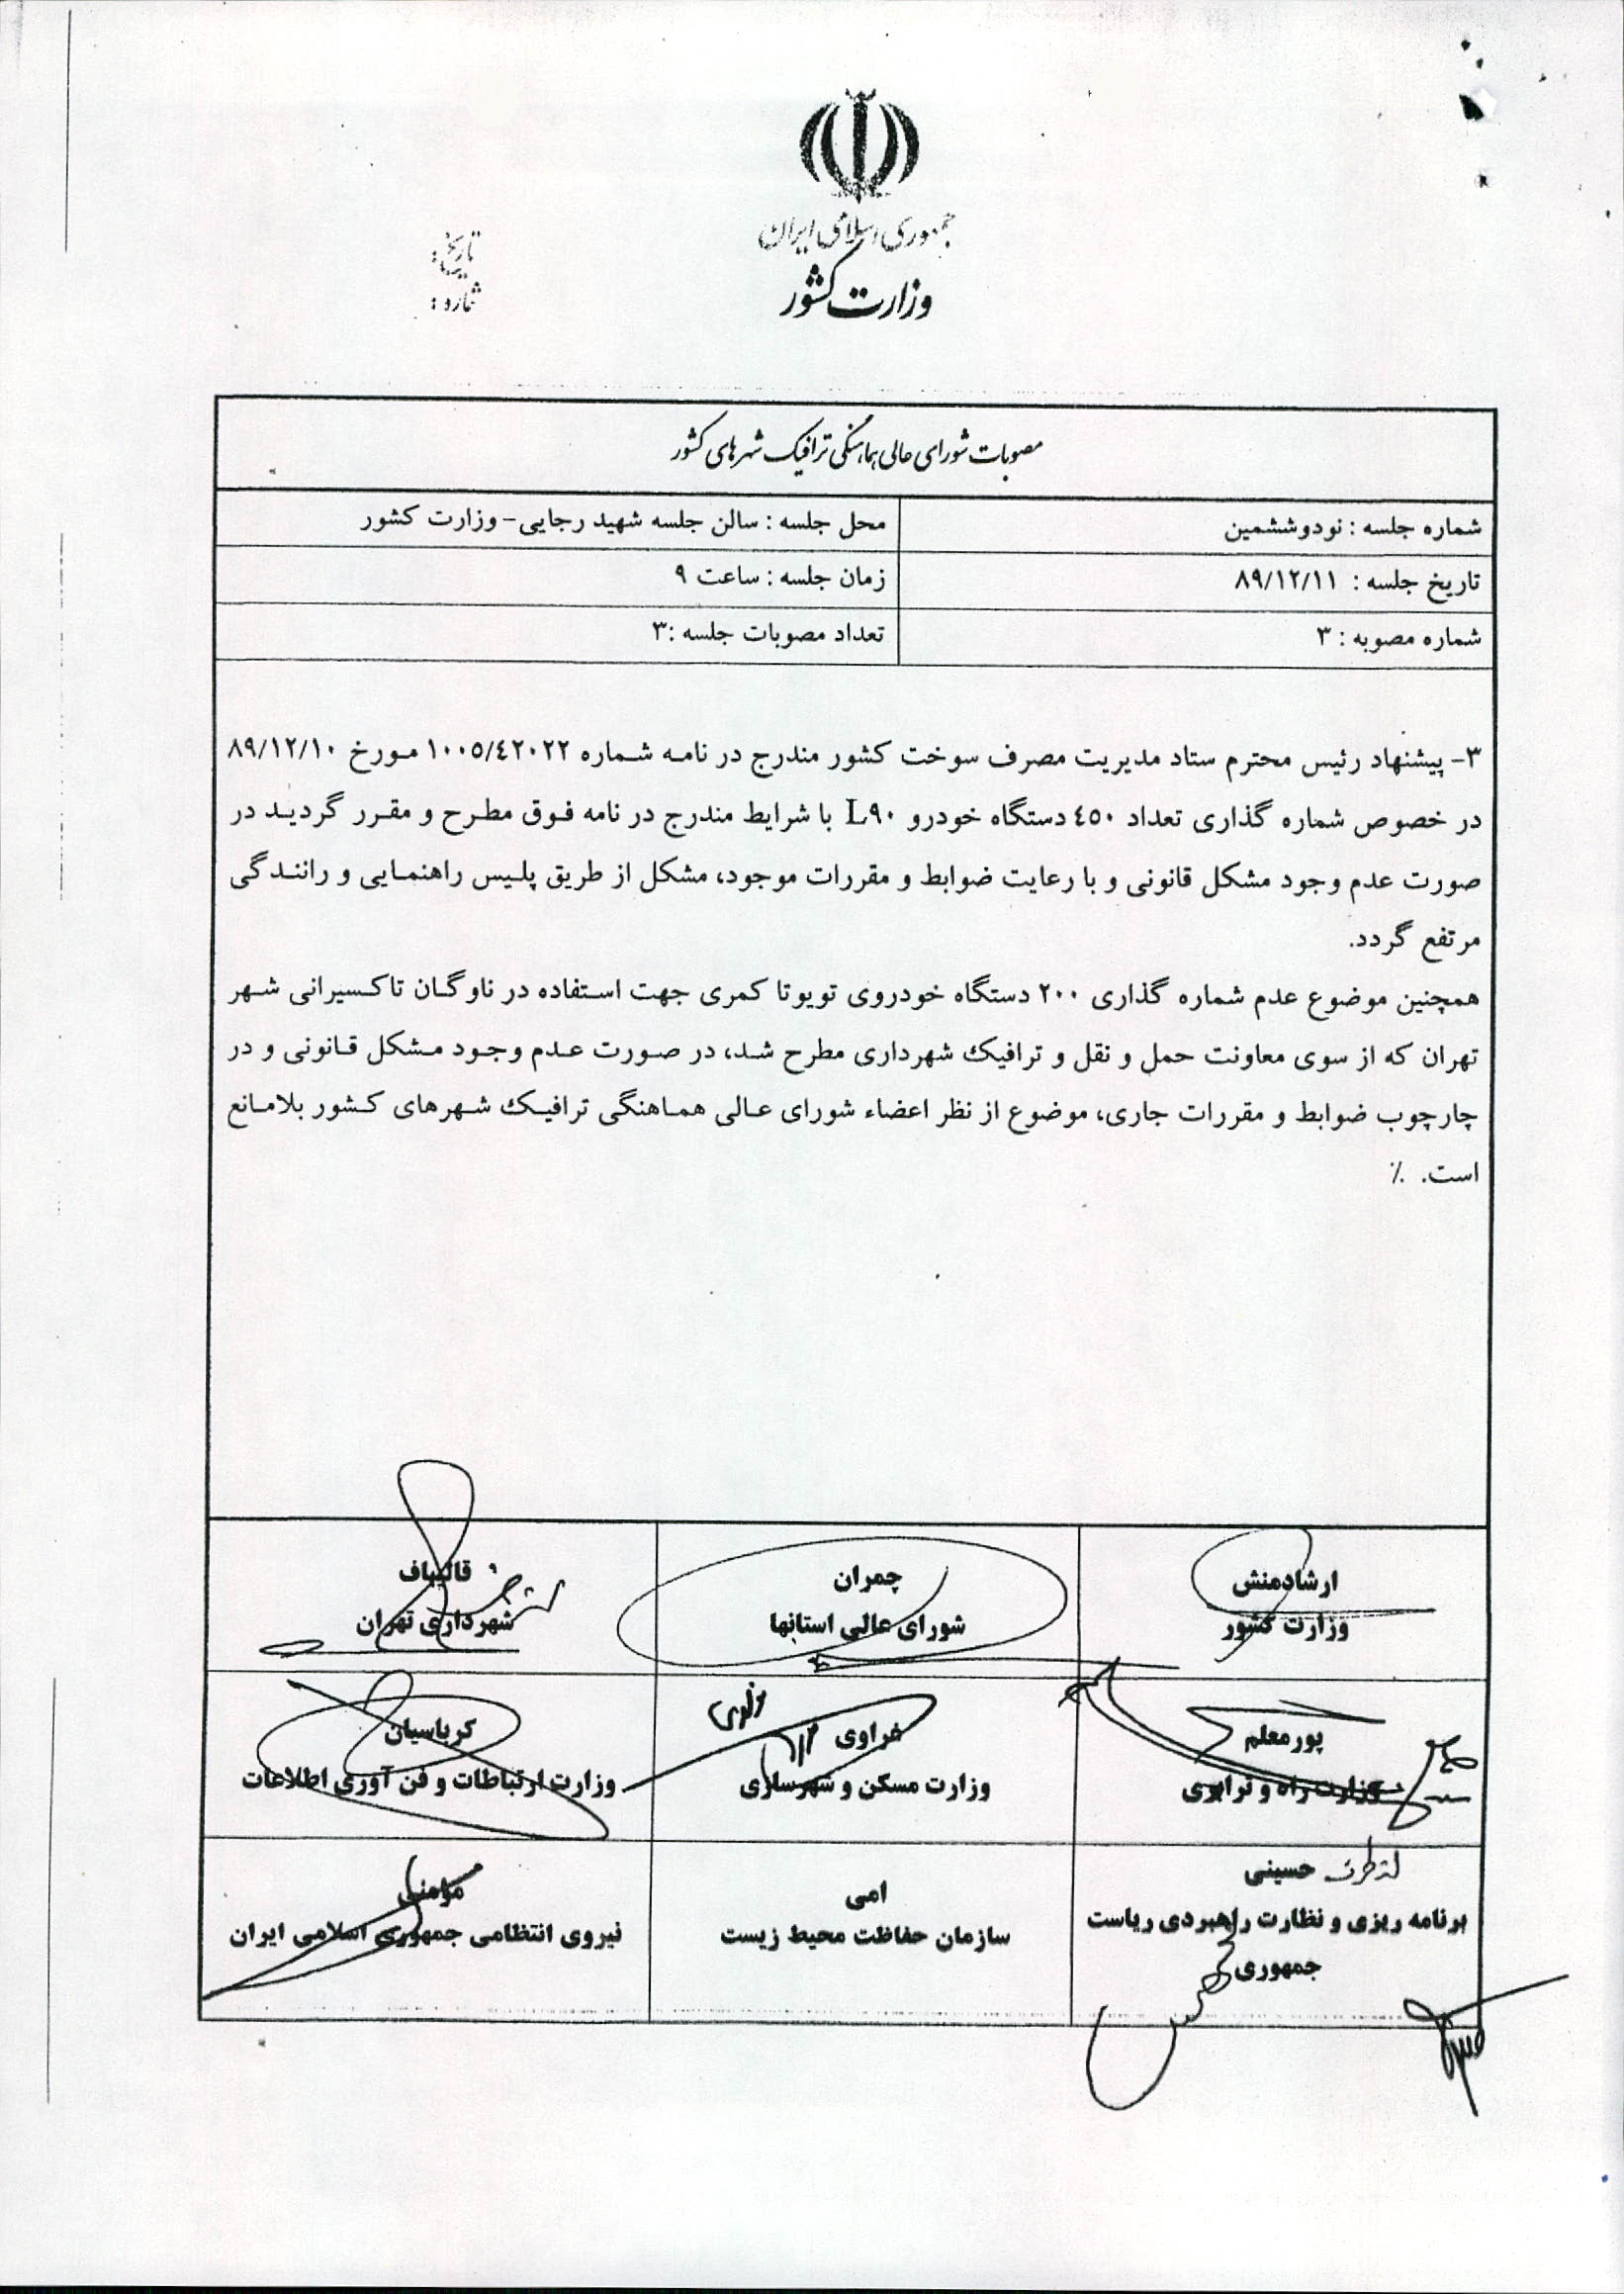 جمهوری اسلامی ایران
وزارت کشور
تاریخ:
شماره:
مصوبات شورای عالی هماهنگی ترافیک شهرهای کشور
شماره جلسه : نودوششمین
محل جلسه : سالن جلسه شهید رجایی- وزارت کشور
تاریخ جلسه : ۸۹/۱۲/۱۱
زمان جلسه : ساعت ۹
شماره مصوبه : ۳
تعداد مصوبات جلسه :۳
۳- پیشنهاد رئیس محترم ستاد مدیریت مصرف سوخت کشور مندرج در نامه شماره ۱۰۰۵/٤۲۰۲۲ مورخ ۸۹/۱۲/۱۰
در خصوص شماره گذاری تعداد ٤٥۰ دستگاه خودرو L۹۰ با شرایط مندرج در نامه فوق مطرح و مقرر گردید در
صورت عدم وجود مشکل قانونی و با رعایت ضوابط و مقررات موجود، مشکل از طریق پلیس راهنمایی و رانندگی
مرتفع گردد.
همچنین موضوع عدم شماره گذاری ۲۰۰ دستگاه خودروی تویوتا کمری جهت استفاده در ناوگان تاکسیرانی شهر
تهران که از سوی معاونت حمل و نقل و ترافیک شهرداری مطرح شد، در صورت عدم وجود مشکل قانونی و در
چارچوب ضوابط و مقررات جاری، موضوع از نظر اعضاء شورای عالی هماهنگی ترافیک شهرهای کشور بلامانع
است. ٪
ارشادمنش
وزارت کشور
چمران
شورای عالی استانها
قالیباف
شهرداری تهران
پورمعلم
وزارت راه و ترابری
غراوی
وزارت مسکن و شهرسازی
کرباسیان
وزارت ارتباطات و فن آوری اطلاعات
حسینی
برنامه ریزی و نظارت راهبردی ریاست
جمهوری
امی
سازمان حفاظت محیط زیست
مؤمنی
نیروی انتظامی جمهوری اسلامی ایران